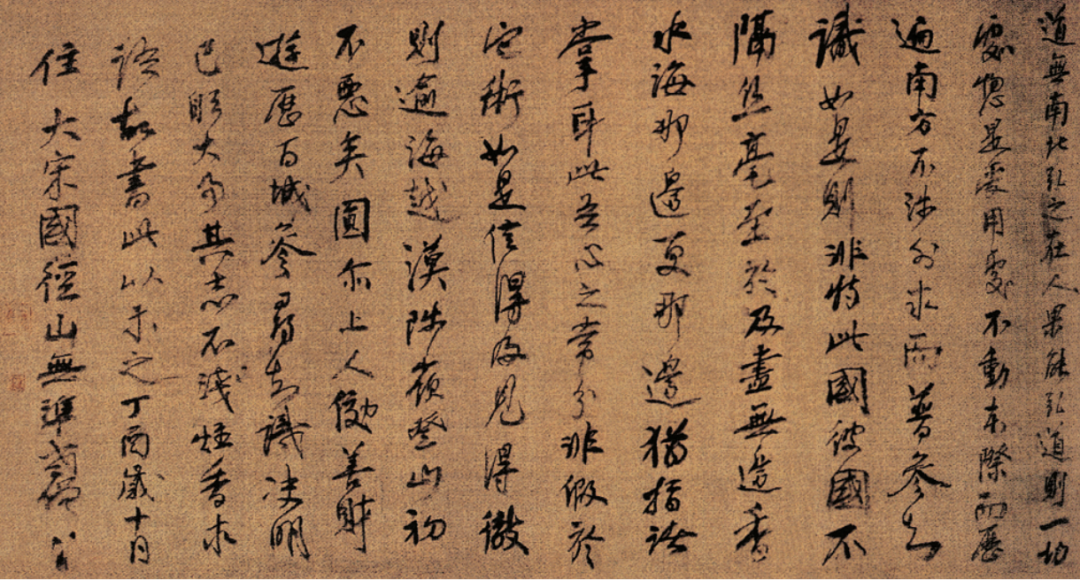 道無南北弘之在人果能弘道則一切
處惣是受用處不動本際而歷
遍南方不涉外求而普參知
識如是則非特此國彼國不
隔絲毫至於及盡無邊香
水海那邊更那邊猶指諸
掌耳此吾心之常分非假於
它術如是信得及見得徹
則逾海越漠陟嶺登山初
不惡矣圓爾上人效善財
遊歷百城參尋知識決明
己躬大事其志不淺炷香求
語故書此以示之丁酉歲十月
住大宋國徑山無準師範